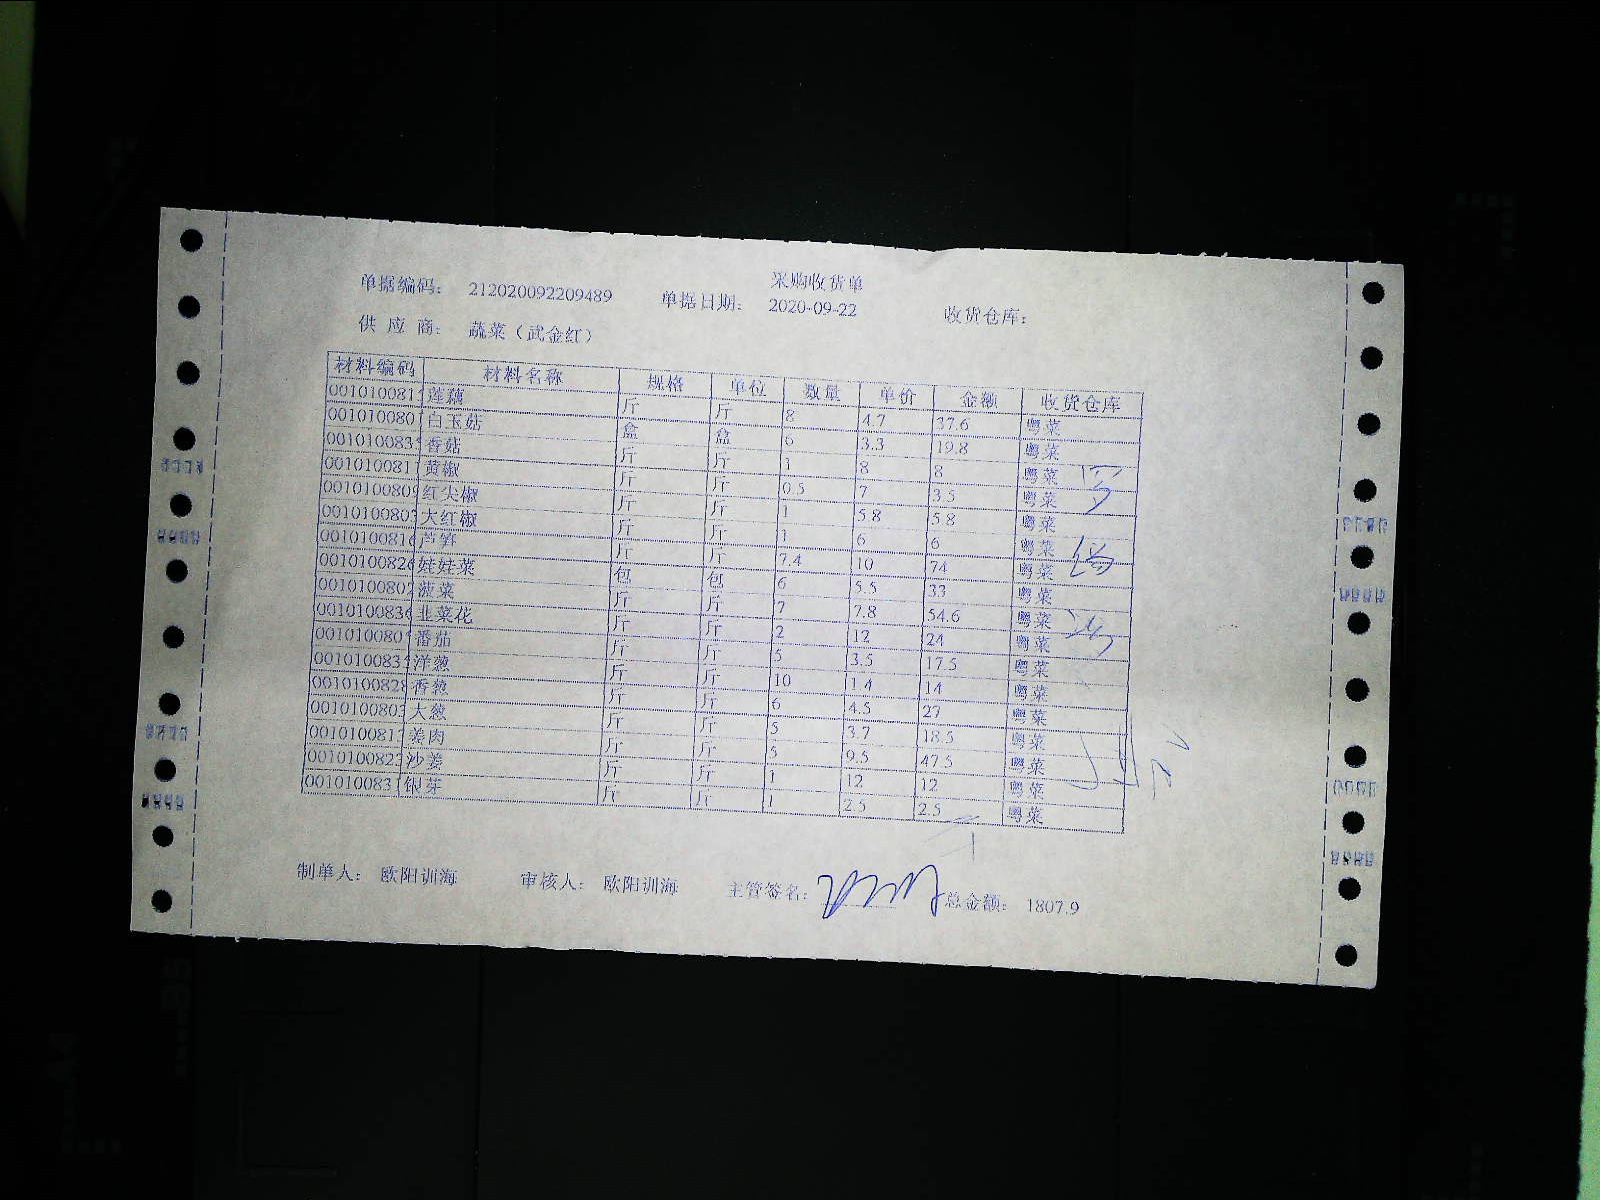 采购收货单
单据编码: 212020092209489 单据日期: 2020-09-22 收货仓库:
供 应 商: 蔬菜（武金红）
材料编码 材料名称 规格 单位 数量 单价 金额 收货仓库
001010081 莲藕 斤 斤 8 4.7 37.6 粤菜
001010080 白玉菇 盒 盒 6 3.3 19.8 粤菜
001010083 香菇 斤 斤 1 8 8 粤菜
001010081 黄椒 斤 斤 0.5 7 3.5 粤菜
001010080 红尖椒 斤 斤 1 5.8 5.8 粤菜
001010080 大红椒 斤 斤 1 6 6 粤菜
001010081 芦笋 斤 斤 7.4 10 74 粤菜
001010082 娃娃菜 包 包 6 5.5 33 粤菜
001010080 菠菜 斤 斤 7 7.8 54.6 粤菜
001010083 韭菜花 斤 斤 2 12 24 粤菜
001010080 番茄 斤 斤 5 3.5 17.5 粤菜
001010083 洋葱 斤 斤 10 1.4 14 粤菜
001010082 香葱 斤 斤 6 4.5 27 粤菜
001010080 大葱 斤 斤 5 3.7 18.5 粤菜
001010081 姜肉 斤 斤 5 9.5 47.5 粤菜
001010082 沙姜 斤 斤 1 12 12 粤菜
001010083 银芽 斤 斤 1 2.5 2.5 粤菜
制单人: 欧阳训海 审核人: 欧阳训海 主管签名: 总金额: 1807.9